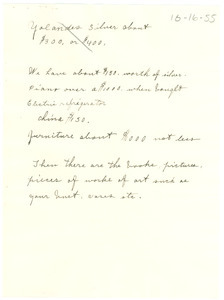 16-16-35
Yolandes silver about
$300, or $400.
We have about $100. worth of silver
Piano over a $1000. when bought
Electric refrigerator
china $150.
furniture about $1000 not less
Then there are the books pictures,
pieces of works of art such as
your bust, vases etc.